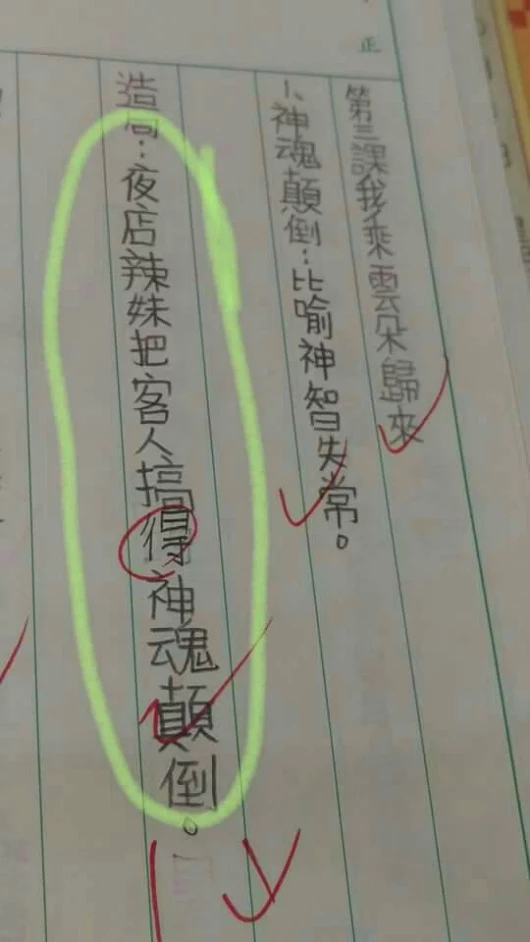 正
第三課我乘雲朵歸來
1、神魂顛倒：比喻神智失常。
造句：夜店辣妹把客人搞得神魂顛倒。